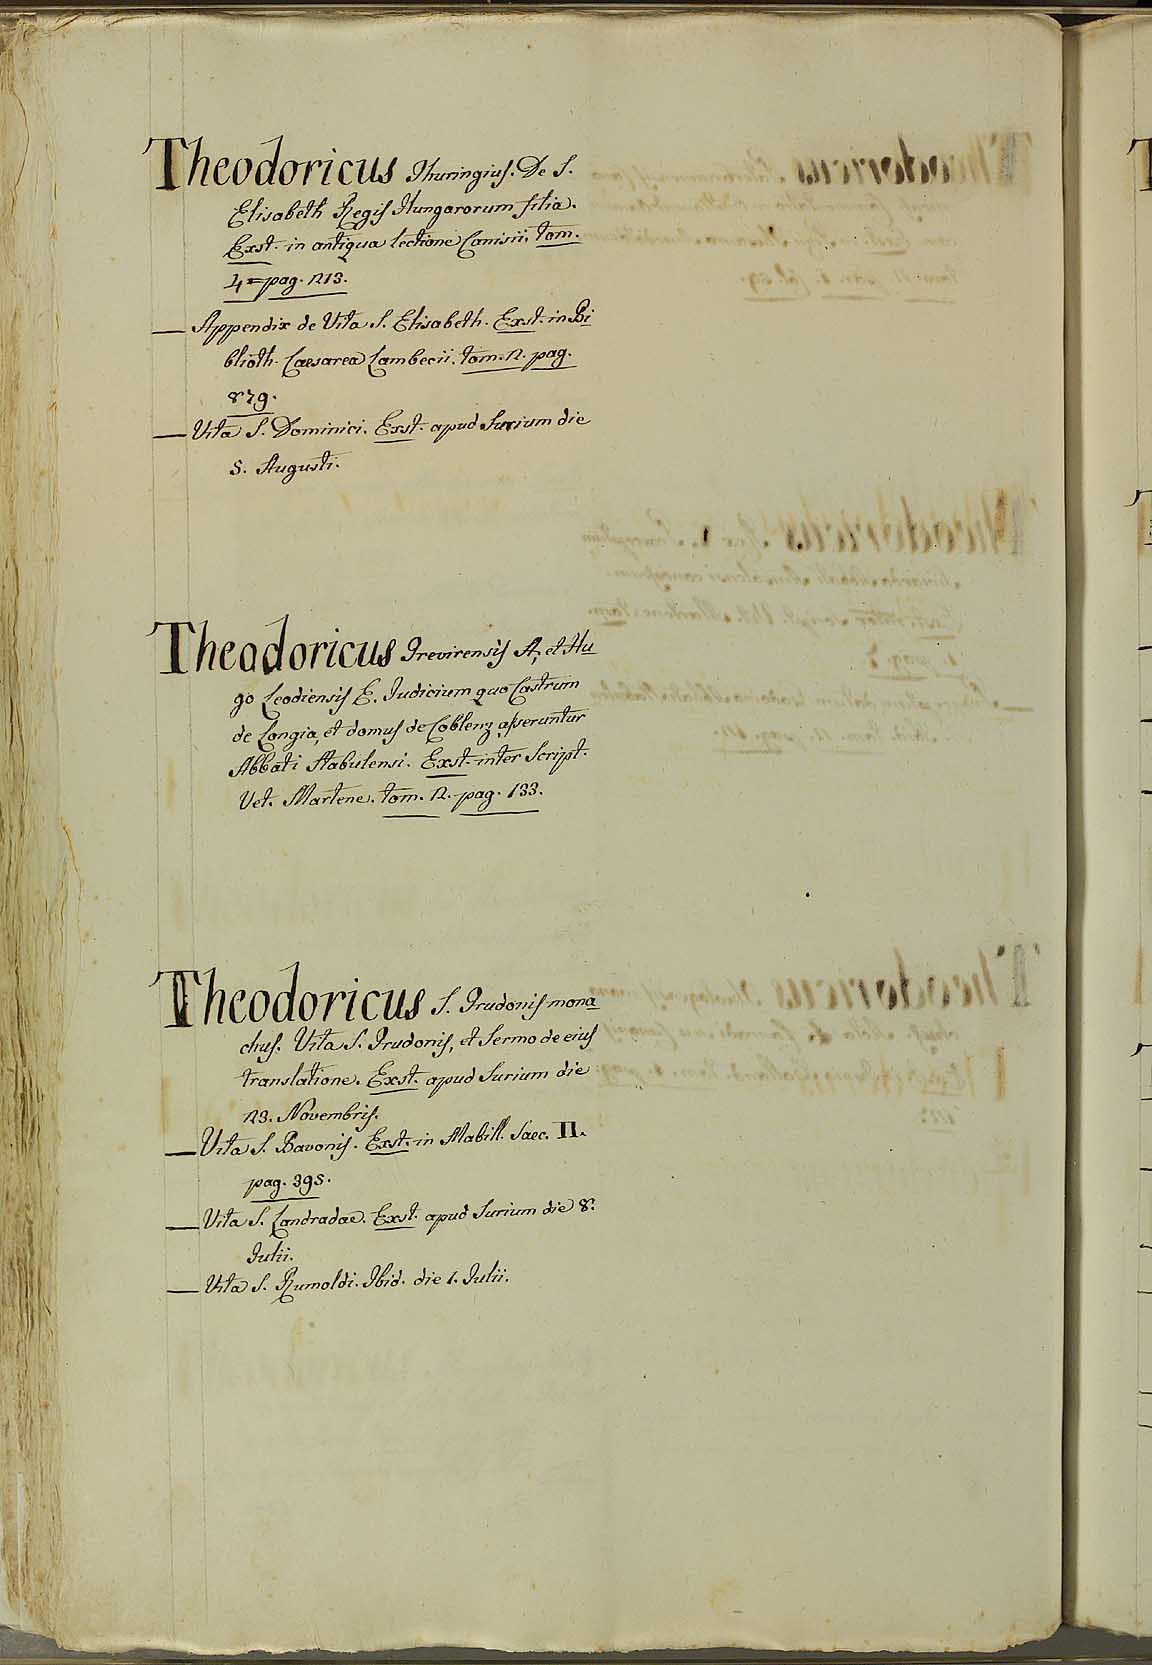 Theodoricus Thuringius. De S.
Elisabeth Regis Hungarorum filia.
Exst. in antiqua lectione Canisii. tom.
4 = pag. 213.
— Appendix de Vita S. Elisabeth. Exst. in Bi
blioth. Caesarea Lambecii. tom. 2. pag.
879.
— Vita S. Dominici. Exst. apud Surium die
5. Augusti.
Theodoricus Trevirensis A, et Hu
go Leodiensis E. Judicium quo Castrum
de Longia, et domus de Coblenz asseruntur
Abbati Stabulensi. Exst. inter Script.
Vet. Martene. tom. 2. pag. 133.
Theodoricus S. Trudonis mona
chus. Vita S. Trudonis, et Sermo de eius
translatione. Exst. apud Surium die
23. Novembris.
— Vita S. Bavonis. Exst. in Mabill. Saec. II.
pag. 395.
— Vita S. Landradae. Exst. apud Surium die 8.
Julii.
— Vita S. Rumoldi. Ibid. die 1. Julii.